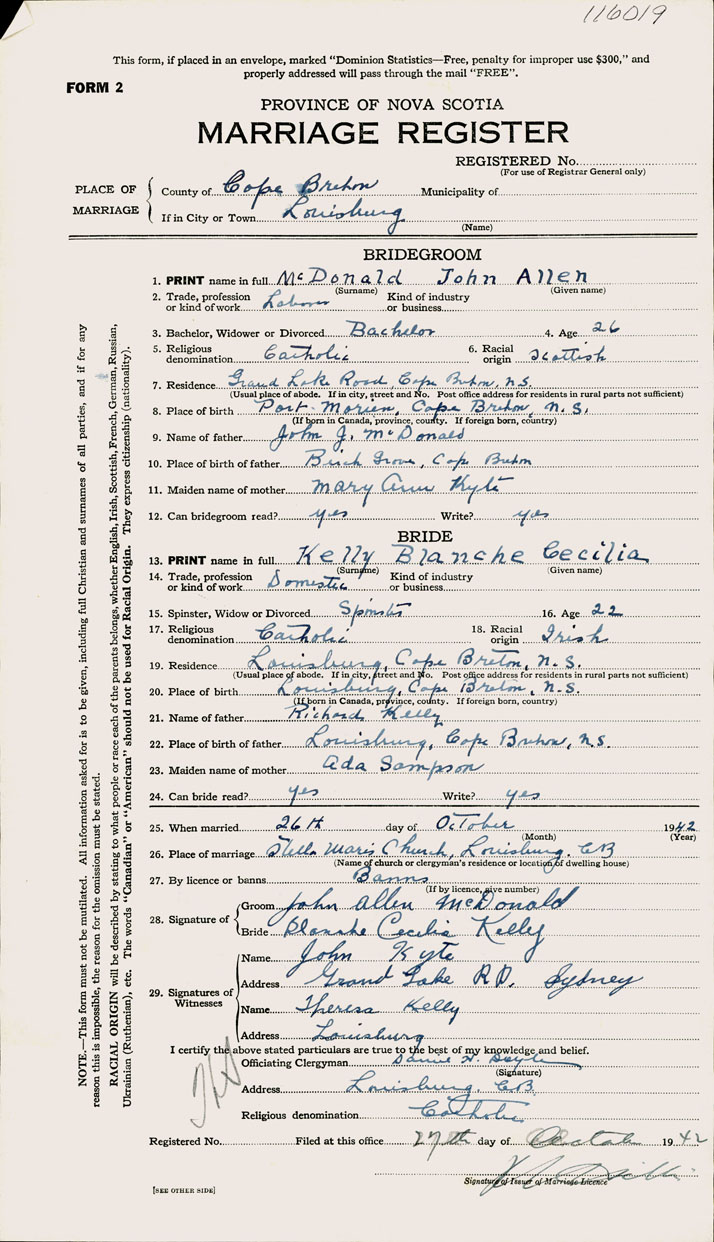 116019
This form, if placed in an envelope, marked "Dominion Statistics—Free, penalty for improper use $300," and
properly addressed will pass through the mail "FREE".
FORM 2
PROVINCE OF NOVA SCOTIA
MARRIAGE REGISTER
REGISTERED No.
(For use of Registrar General only)
PLACE OF MARRIAGE
County of Cape Breton Municipality of
If in City or Town Louisburg
(Name)
BRIDEGROOM
1. PRINT name in full McDonald John Allen
(Surname) (Given name)
2. Trade, profession or kind of work Laborer Kind of industry or business
3. Bachelor, Widower or Divorced Bachelor 4. Age 26
5. Religious denomination Catholic 6. Racial origin Scottish
7. Residence Grand Lake Road, Cape Breton, N.S.
(Usual place of abode. If in city, street and No. Post office address for residents in rural parts not sufficient)
8. Place of birth Port-Morien, Cape Breton, N.S.
(If born in Canada, province, county. If foreign born, country)
9. Name of father John J. McDonald
10. Place of birth of father Birch Grove, Cape Breton
11. Maiden name of mother Mary Ann Kyte
12. Can bridegroom read? yes Write? yes
BRIDE
13. PRINT name in full Kelly Blanche Cecilia
(Surname) (Given name)
14. Trade, profession or kind of work Domestic Kind of industry or business
15. Spinster, Widow or Divorced Spinster 16. Age 22
17. Religious denomination Catholic 18. Racial origin Irish
19. Residence Louisburg, Cape Breton, N.S.
(Usual place of abode. If in city, street and No. Post office address for residents in rural parts not sufficient)
20. Place of birth Louisburg, Cape Breton, N.S.
(If born in Canada, province, county. If foreign born, country)
21. Name of father Richard Kelly
22. Place of birth of father Louisburg, Cape Breton, N.S.
23. Maiden name of mother Ada Sampson
24. Can bride read? yes Write? yes
25. When married 26th day of October 1942
(Month) (Year)
26. Place of marriage Stella Maris Church, Louisburg. C.B
(Name of church or clergyman's residence or location of dwelling house)
27. By licence or banns Banns
(If by licence, give number)
28. Signature of
Groom John Allen McDonald
Bride Blanche Cecilia Kelly
29. Signatures of Witnesses
Name John Kyte
Address Grand Lake RD. Sydney
Name Theresa Kelly
Address Louisburg
I certify the above stated particulars are true to the best of my knowledge and belief.
Officiating Clergyman
(Signature)
Address Louisburg. C.B.
Religious denomination Catholic
Registered No. Filed at this office 27th day of October 1942
Signature of Issuer of Marriage Licence
[SEE OTHER SIDE]
NOTE.—This form must not be mutilated. All information asked for is to be given, including full Christian and surnames of all parties, and if for any
reason this is impossible, the reason for the omission must be stated.
RACIAL ORIGIN will be described by stating to what people or race each of the parents belongs, whether English, Irish, Scottish, French, German, Russian,
Ukrainian (Ruthenian), etc. The words "Canadian" or "American" should not be used for Racial Origin. They express citizenship (nationality).